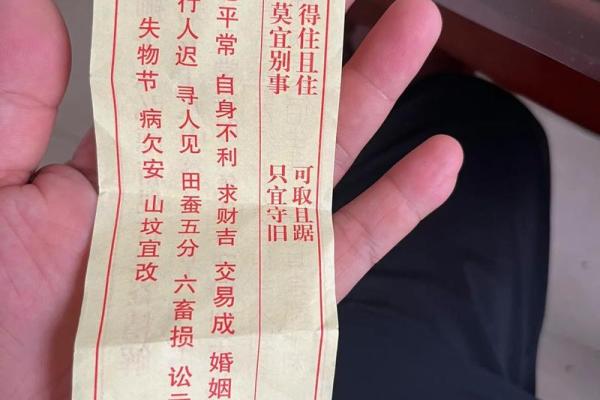 得住且住 可取且踞
莫宜别事 只宜守旧
平常 自身不利 求财吉 交易成 婚姻
行人迟 寻人见 田蚕五分 六畜损 讼
失物节 病欠安 山坟宜改